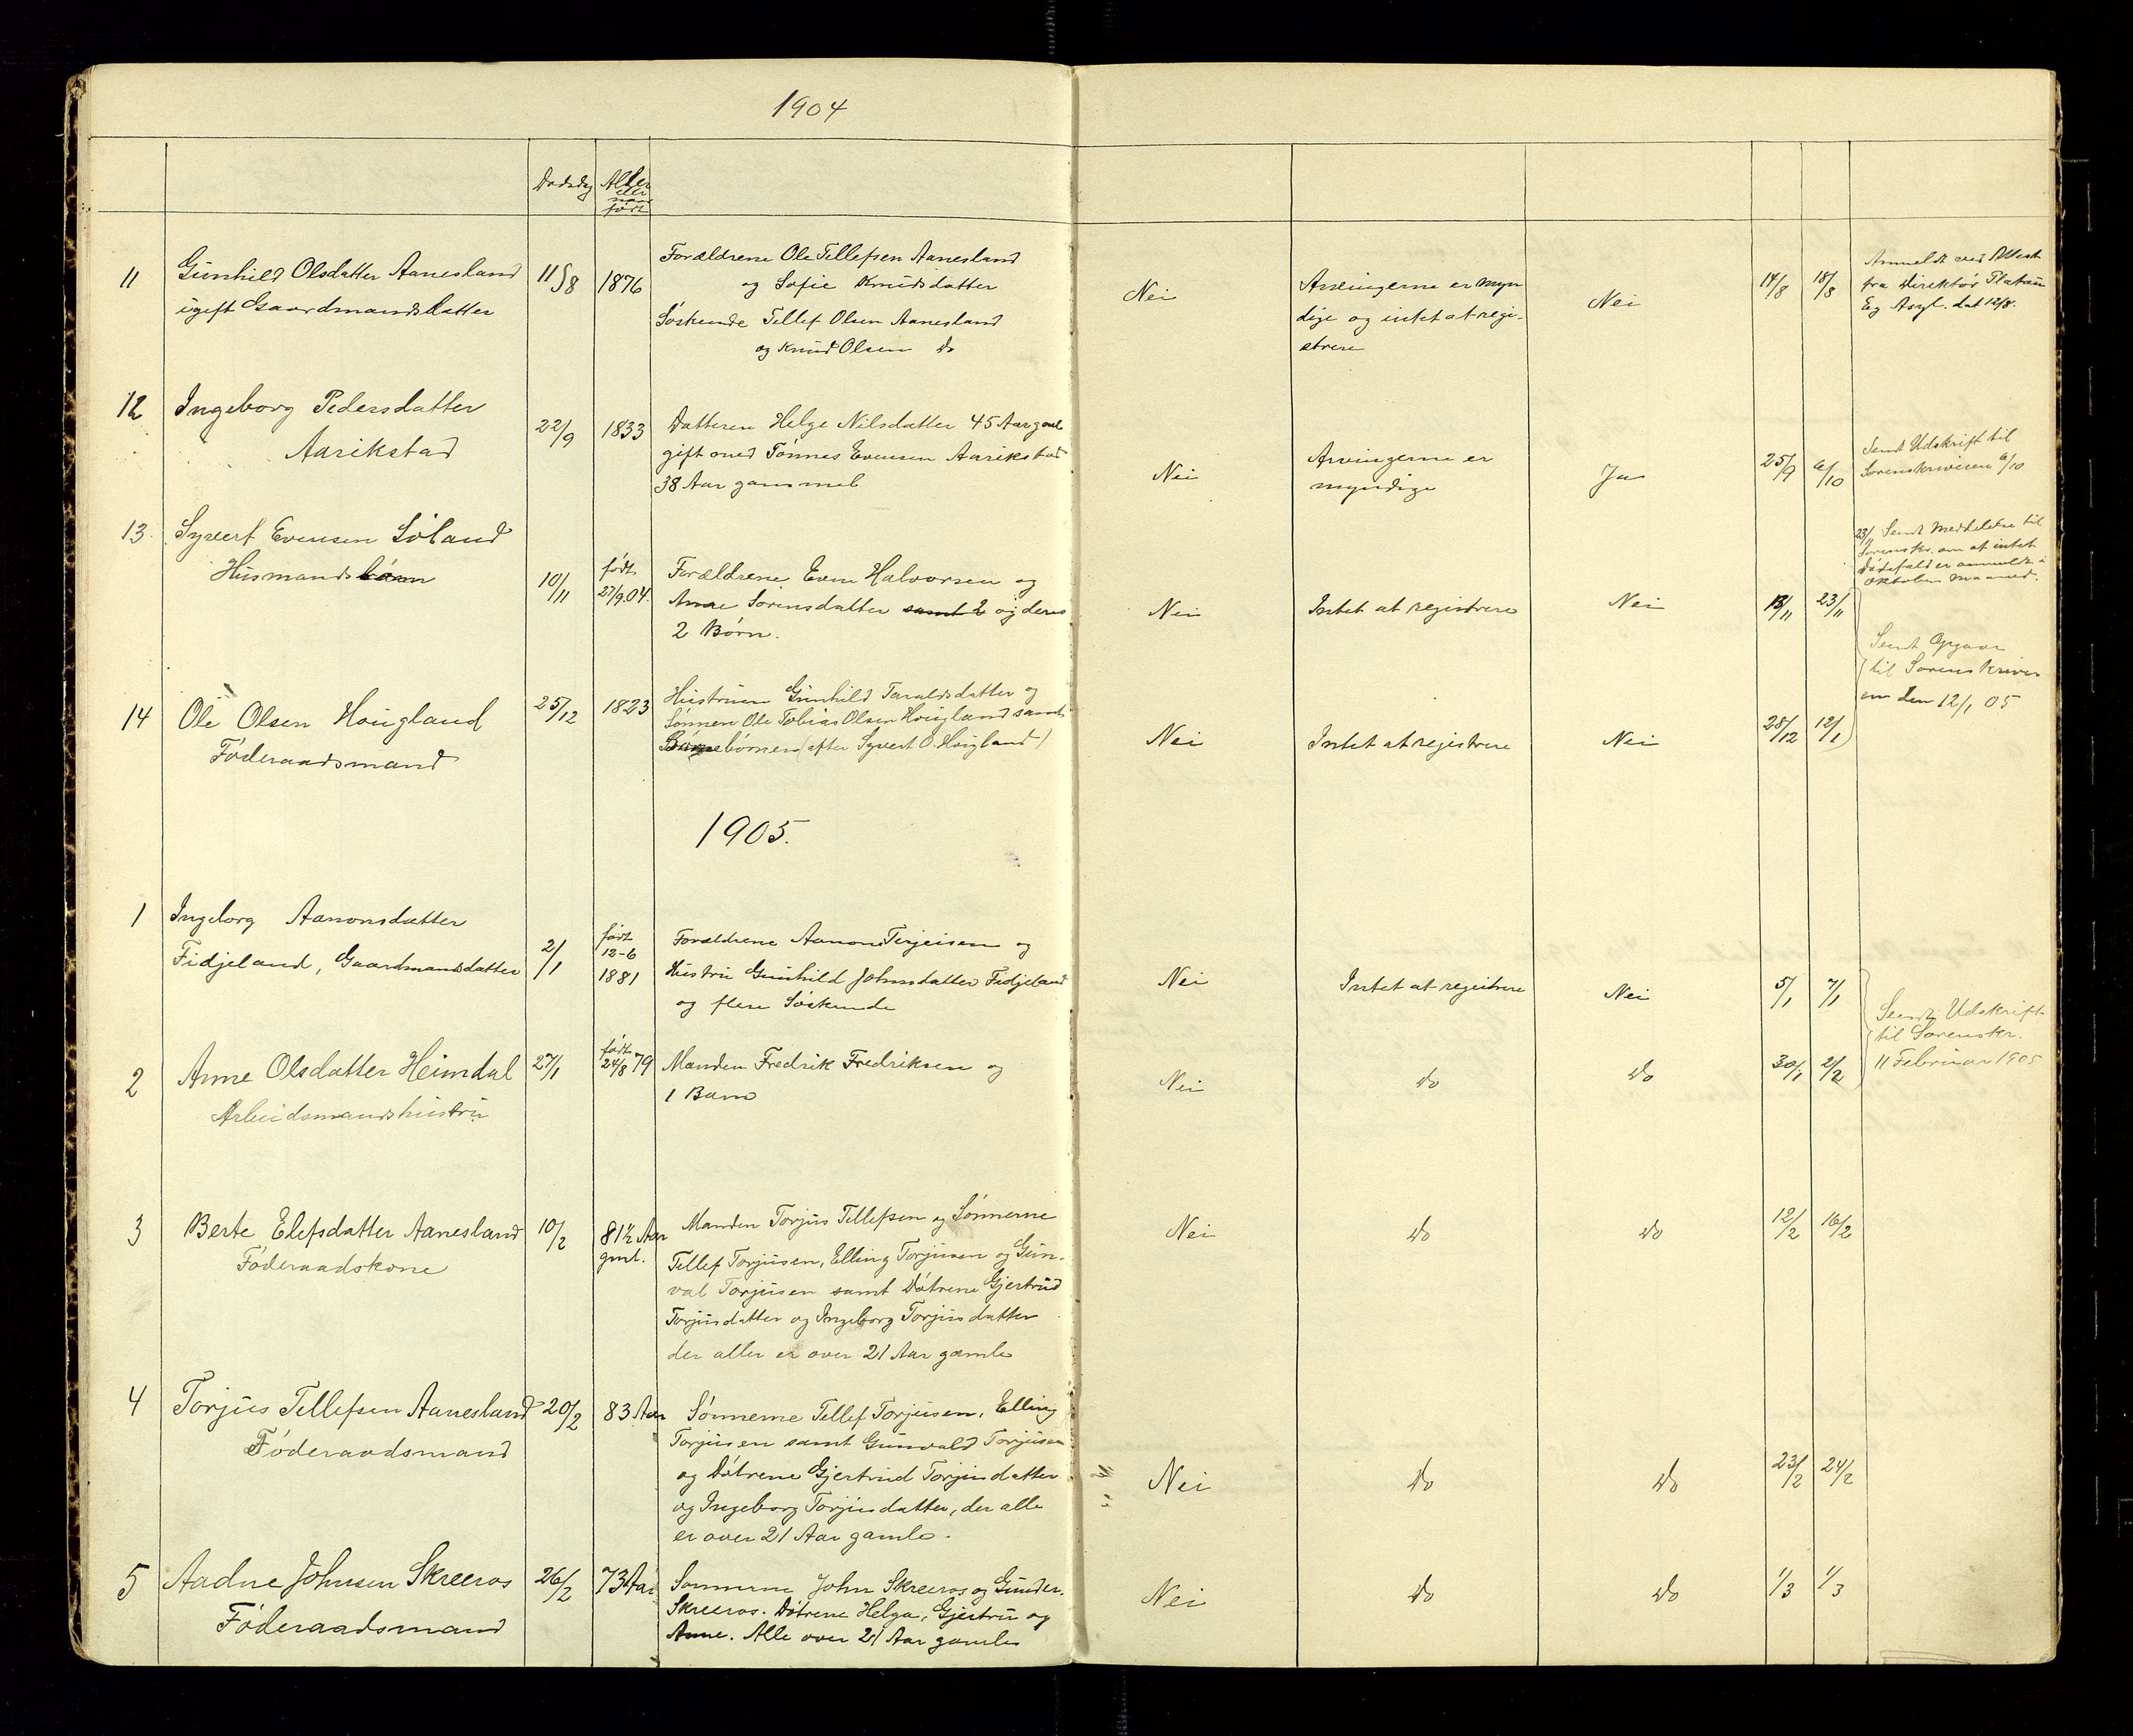 1904
Dødsdag Alder
eller
naar
født
11 Gunhild Olsdatter Aanesland 11/8 1876 Forældrene Ole Tellefsen Aanesland
ugift Gaardmandsdatter og Sofie Knudsdatter
Søskende Tellef Olsen Aanesland
og Knud Olsen Do
Nei Arvingerne er myn
dige og intet at regi-
strere Nei 14/8 18/8 Anmeldt ved Attest
fra Direktør Platou
Eg Asyl. dat 12/8.
12 Ingeborg Pedersdatter
Aarikstad 22/9 1833 Datteren Helge Nilsdatter 45 Aar gml
gift med Tønnes Evensen Aarikstad
38 Aar gammel
Nei Arvingerne er
myndige Ja 25/9 6/10 Sendt Udskrift til
Sorenskriveren 6/10
13. Syvert Evensen Søland
Husmandsbarn 10/11 født
27/9.04. Forældrene Even Halvorsen og
Anne Sørensdatter samt 2 og deres
2 Børn.
Nei Intet at registrere Nei 13/11 23/11
23/11 Sendt Meddelelse til
Sorenskr. om at intet
Dødsfald er anmeldt i
Oktober Maaned.
14 Ole Olsen Hougland
Føderaadsmand 25/12 1823 Hustruen Gunhild Taraldsdatter og
Sønnen Ole Tobias Olsen Hougland samt
Børnebørnen (efter Syvert O. Hougland)
Nei Intet at registrere Nei 28/12 12/1
Sendt Opgave
til Sorenskriver
en den 12/1 05
1905.
1 Ingeborg Aanonsdatter
Fidjeland, Gaardmandsdatter 2/1 født
12-6
1881 Forældrene Aanon Terjeisen og
Hustru Gunhild Johnsdatter Fidjeland
og flere Søskende
Nei Intet at registrere Nei 5/1 7/1
Sendt Udskrift
til Sorenskr.
11 Februar 1905
2 Anne Olsdatter Heimdal
Arbeidsmandshustru 27/1 født
24/8 79 Manden Fredrik Fredriksen og
1 Barn
Nei Do Do 30/1 2/2
3 Berte Elefsdatter Aanesland
Føderaadskone 10/2 81½ Aar
gml. Manden Torjus Tellefsen og Sønnerne
Tellef Torjusen, Elling Torjusen og Gun-
val Torjusen samt Døtrene Gjertrud
Torjusdatter og Ingeborg Torjusdatter
der aller er over 21 Aar gamle
Nei Do Do 12/2 16/2
4 Torjus Tellefsen Aanesland
Føderaadsmand 20/2 83 Aar Sønnerne Tellef Torjusen, Elling
Torjusen samt Gunvald Torjusen
og Døtrene Gjertrud Torjusdatter
og Ingeborg Torjusdatter, der alle
er over 21 Aar gamle.
Nei Do Do 23/2 24/2
5 Aadne Johnsen Skreeros
Føderaadsmand 26/2 73 Aar Sønnerne John Skreeros og Gunder
Skreeros. Døtrene Helga, Gjertru og
Anne. Alle over 21 Aar gamle
Nei Do Do 1/3 1/3